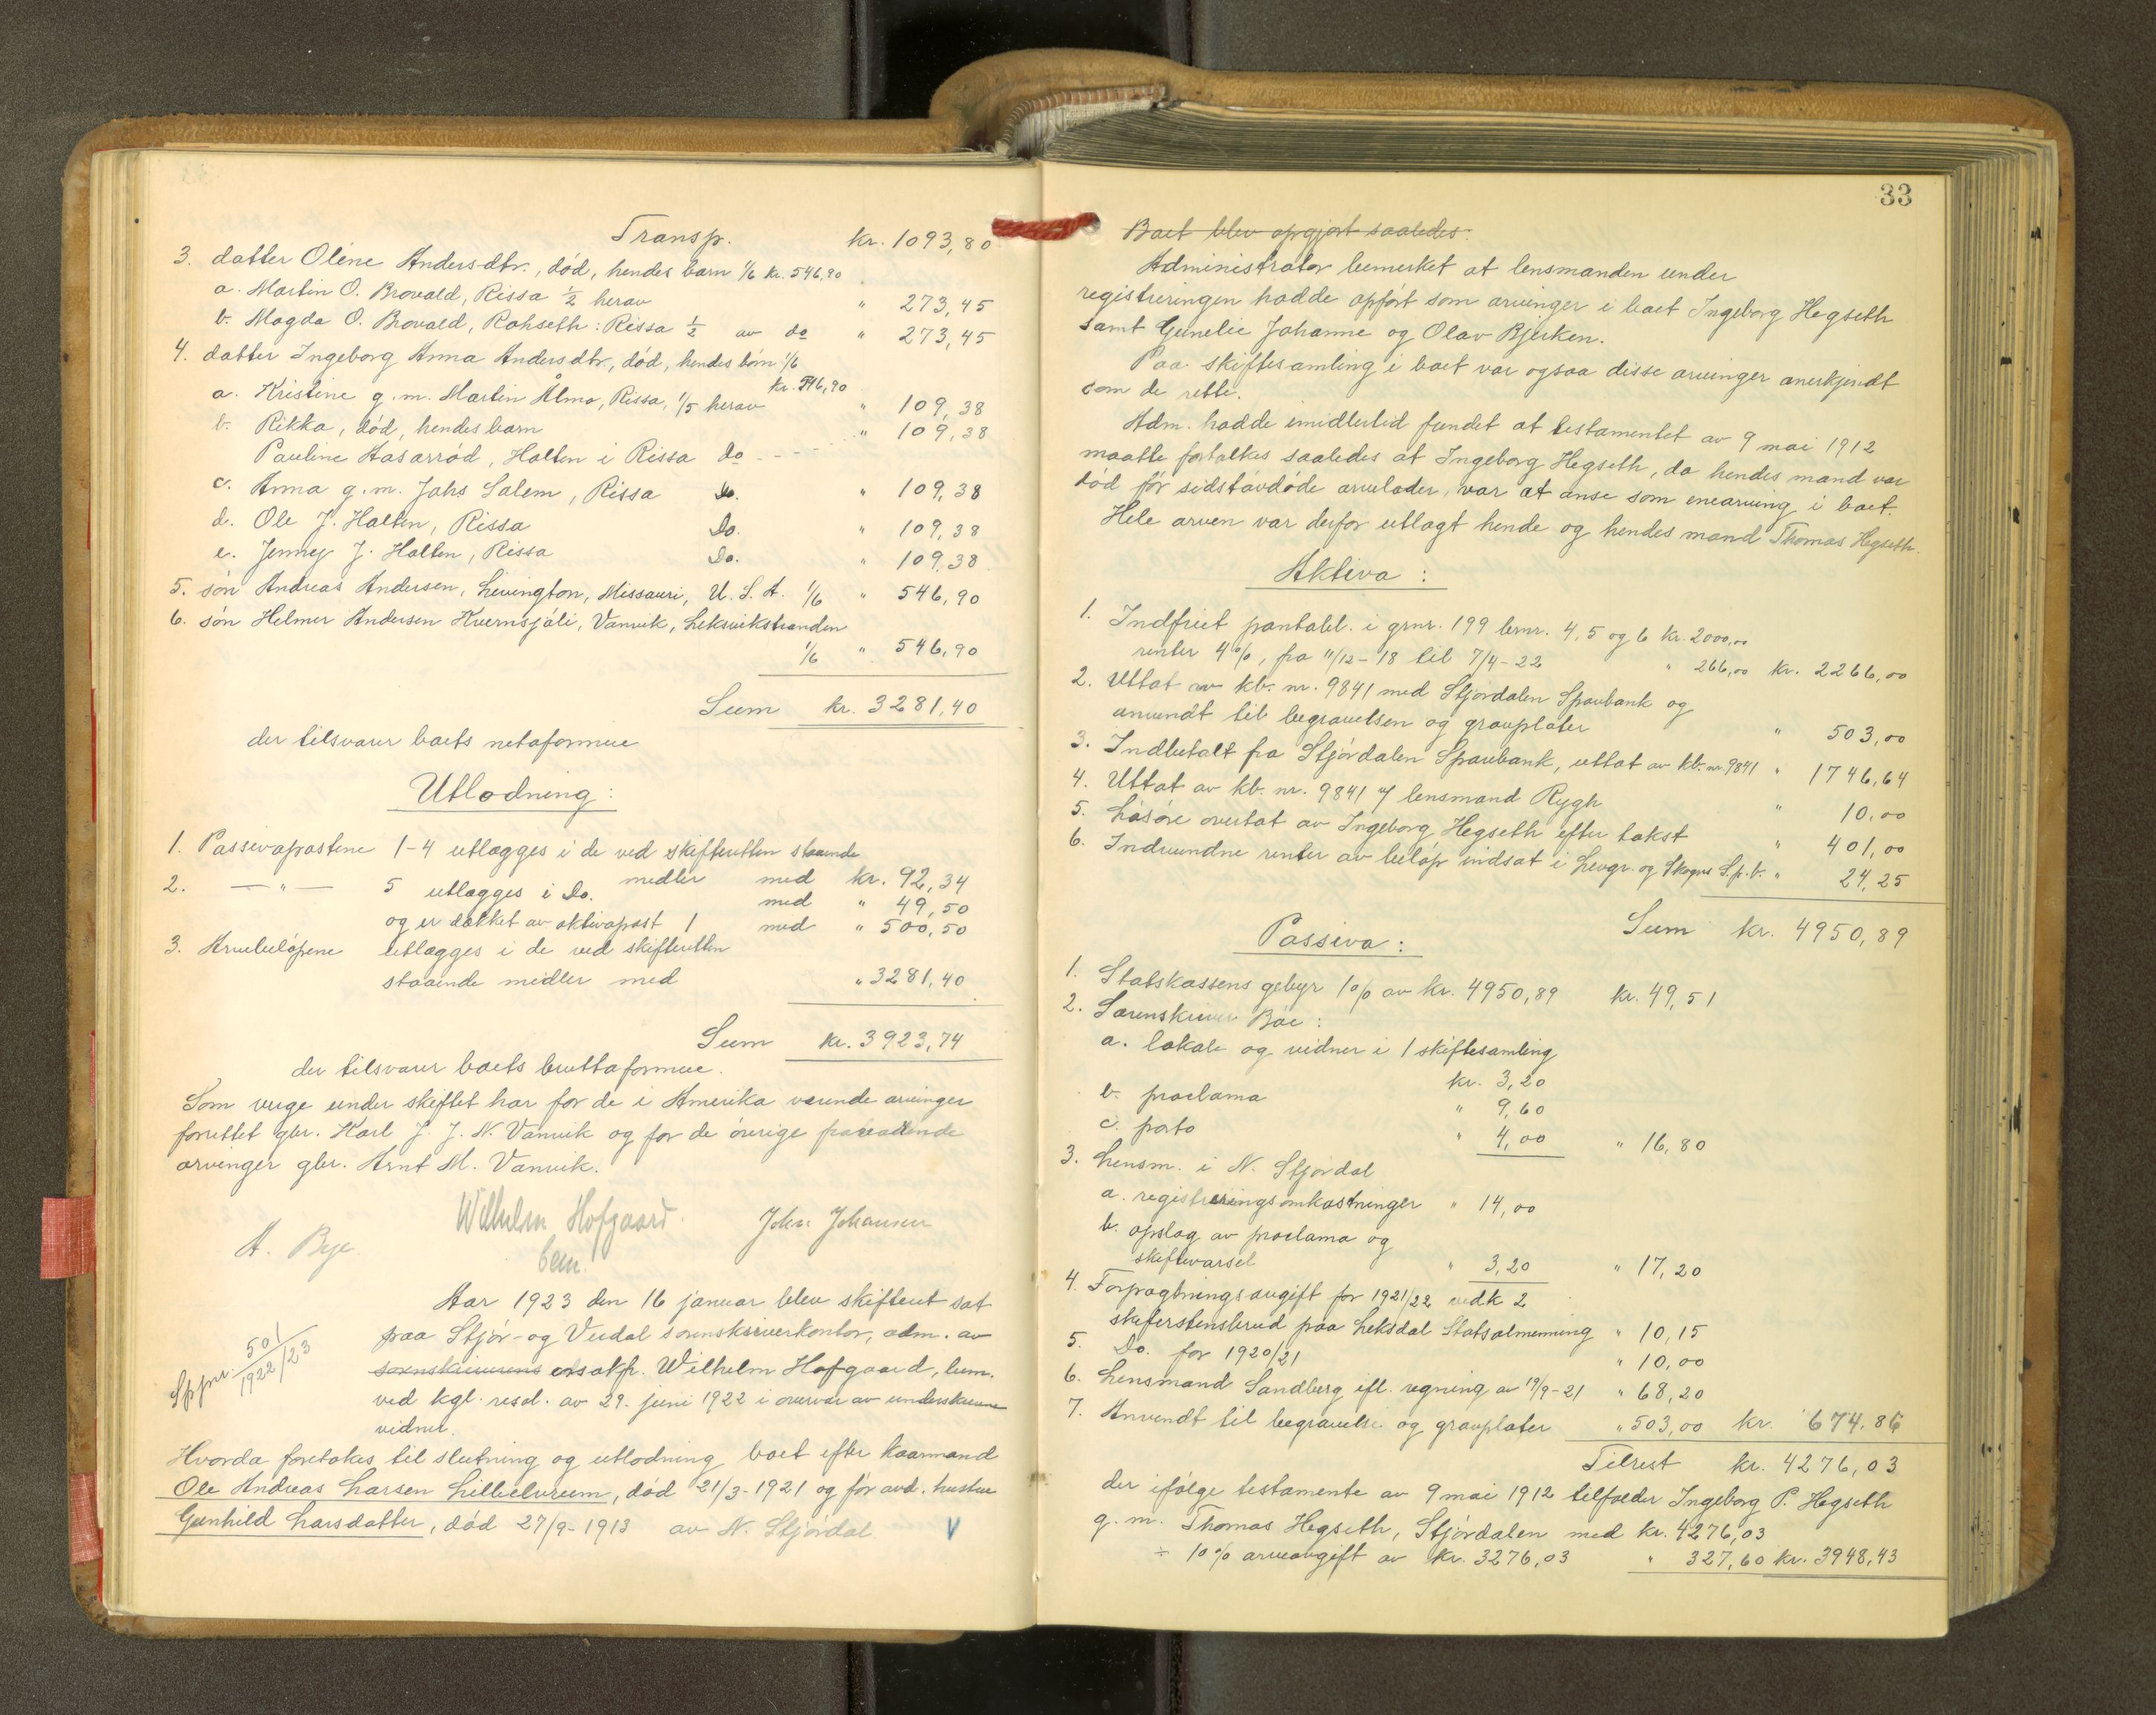 Transp. kr. 1093,80
3. datter Oline Anders-dtr., død, hendes barn 1/6 kr. 546,90
a. Martin O. Brovald, Rissa 1/2 herav " 273,45
b. Magda O. Brovald, Rohseth: Rissa 1/2 av do " 273,45
4. datter Ingeborg Anna Andersdtr., død, hendes børn 1/6
kr. 546,90
a. Kristine g.m. Martin Almo, Rissa, 1/5 herav " 109,38
b. Rikka, død, hendes barn " 109,38
Pauline Hasarrød, Halten i Rissa do - - -
c. Anna g.m. Johs Salem, Rissa Do. " 109,38
d. Ole J. Halten, Rissa Do. " 109,38
e. Jenny J. Halten, Rissa Do. " 109,38
5. søn Andreas Andersen, Livington, Missauri, U.S.A. 1/6 " 546,90
6. søn Helmer Andersen Kvernsjøli, Vanvik, Leksvikstranden
1/6 " 546,90
Sum kr. 3281,40
der tilsvarer boets netoformue
Utlodning:
1. Passivapostene 1-4 utlægges i de ved skifteretten staaende
midler med kr. 92,34
2. — " — 5 utlægges i Do. med " 49,50
og er dækket av aktivapost 1 med " 500,50
3. Arvebeløpene utlægges i de ved skifteretten
staaende midler med " 3281,40
Sum kr. 3923,74
der tilsvarer boets bruttoformue.
Som verge under skiftet har for de i Amerika værende arvinger
forrettet gbr. Karl J. J. N. Vanvik og for de øvrige fraværende
arvinger gbr. Arnt M. Vanvik.
Wilhelm Hofgaard
bem.
John Johansen
A. Bye
Aar 1923 den 16 januar blev skifteret sat
paa Stjør- og Verdal sorenskriverkontor, adm. av
sorenskriverens ens okf. Wilhelm Hofgaard, bem.
ved kgl. resol. av 29. juni 1922 i overvær av underskrevne
vidner.
Sppr. 501/1922/23
Hvorda foretokes til slutning og utlodning boet efter kaarmand
Ole Andreas Larsen Lillelvrum, død 21/3-1921 og før avd. hustru
Gunhild Larsdatter, død 27/9-1913 av N. Stjørdal V
33
Boet blev opgjort saaledes:
Administrator bemerket at lensmanden under
registreringen hadde opført som arvinger i boet Ingeborg Hegseth
samt Gunelie Johanne og Olav Bjerken.
Paa skiftesamling i boet var ogsaa disse arvinger anerkjendt
som de rette.
Adm. hadde imidlertid fundet at testamentet av 9 mai 1912
maatte fortolkes saaledes at Ingeborg Hegseth, da hendes mand var
død før sidstavdøde arvelader, var at anse som enearving i boet.
Hele arven var derfor utlagt hende og hendes mand Thomas Hegseth.
Aktiva:
1. Indfriet pantobl. i grnr. 199 brnr. 4, 5 og 6 kr. 2000,00
renter 4%, fra 11/12-18 til 7/4-22 " 266,00 kr. 2266,00
2. Uttat av kb. nr. 9841 med Stjørdalen Sparebank og
anvendt til begravelsen og gravplater " 503,00
3. Indbetalt fra Stjørdalen Sparebank, uttat av kb. nr 9841 " 1746,64
4. Uttat av kb. nr. 9841 af lensmand Rygh " 10,00
5. Løsøre overtat av Ingeborg Hegseth efter takst " 401,00
6. Indvundne renter av beløp indsat i Levgr. og Skogns S.p.b. " 24,25
Sum kr. 4950,89
Passiva:
1. Statskassens gebyr 1% av kr. 4950,89 kr. 49,51
2. Sorenskriver Bøe:
a. lokale og vidner i 1 skiftesamling
kr. 3,20
b. proclama " 9,60
c. porto " 4,00 " 16,80
3. Lensm. i N. Stjørdal
a. registreringsomkostninger " 14,00
b. opslag av proclama og
skiftevarsel " 3,20 " 17,20
4. Forpagtningsavgift for 1921/22 vedk 2
skiferstensbrud paa Leksdal Statsalmenning " 10,15
5. Do. for 1920/21 " 10,00
6. Lensmand Sandberg ifl. regning av 19/9-21 " 68,20
7. Anvendt til begravelse og gravplater " 503,00 kr. 674,86
Tilrest kr. 4276,03
der ifølge testamente av 9 mai 1912 tilfalder Ingeborg P. Hegseth
g.m. Thomas Hegseth, Stjørdalen med kr. 4276,03
÷ 10% arveavgift av kr. 3276,03 " 327,60 kr. 3948,43